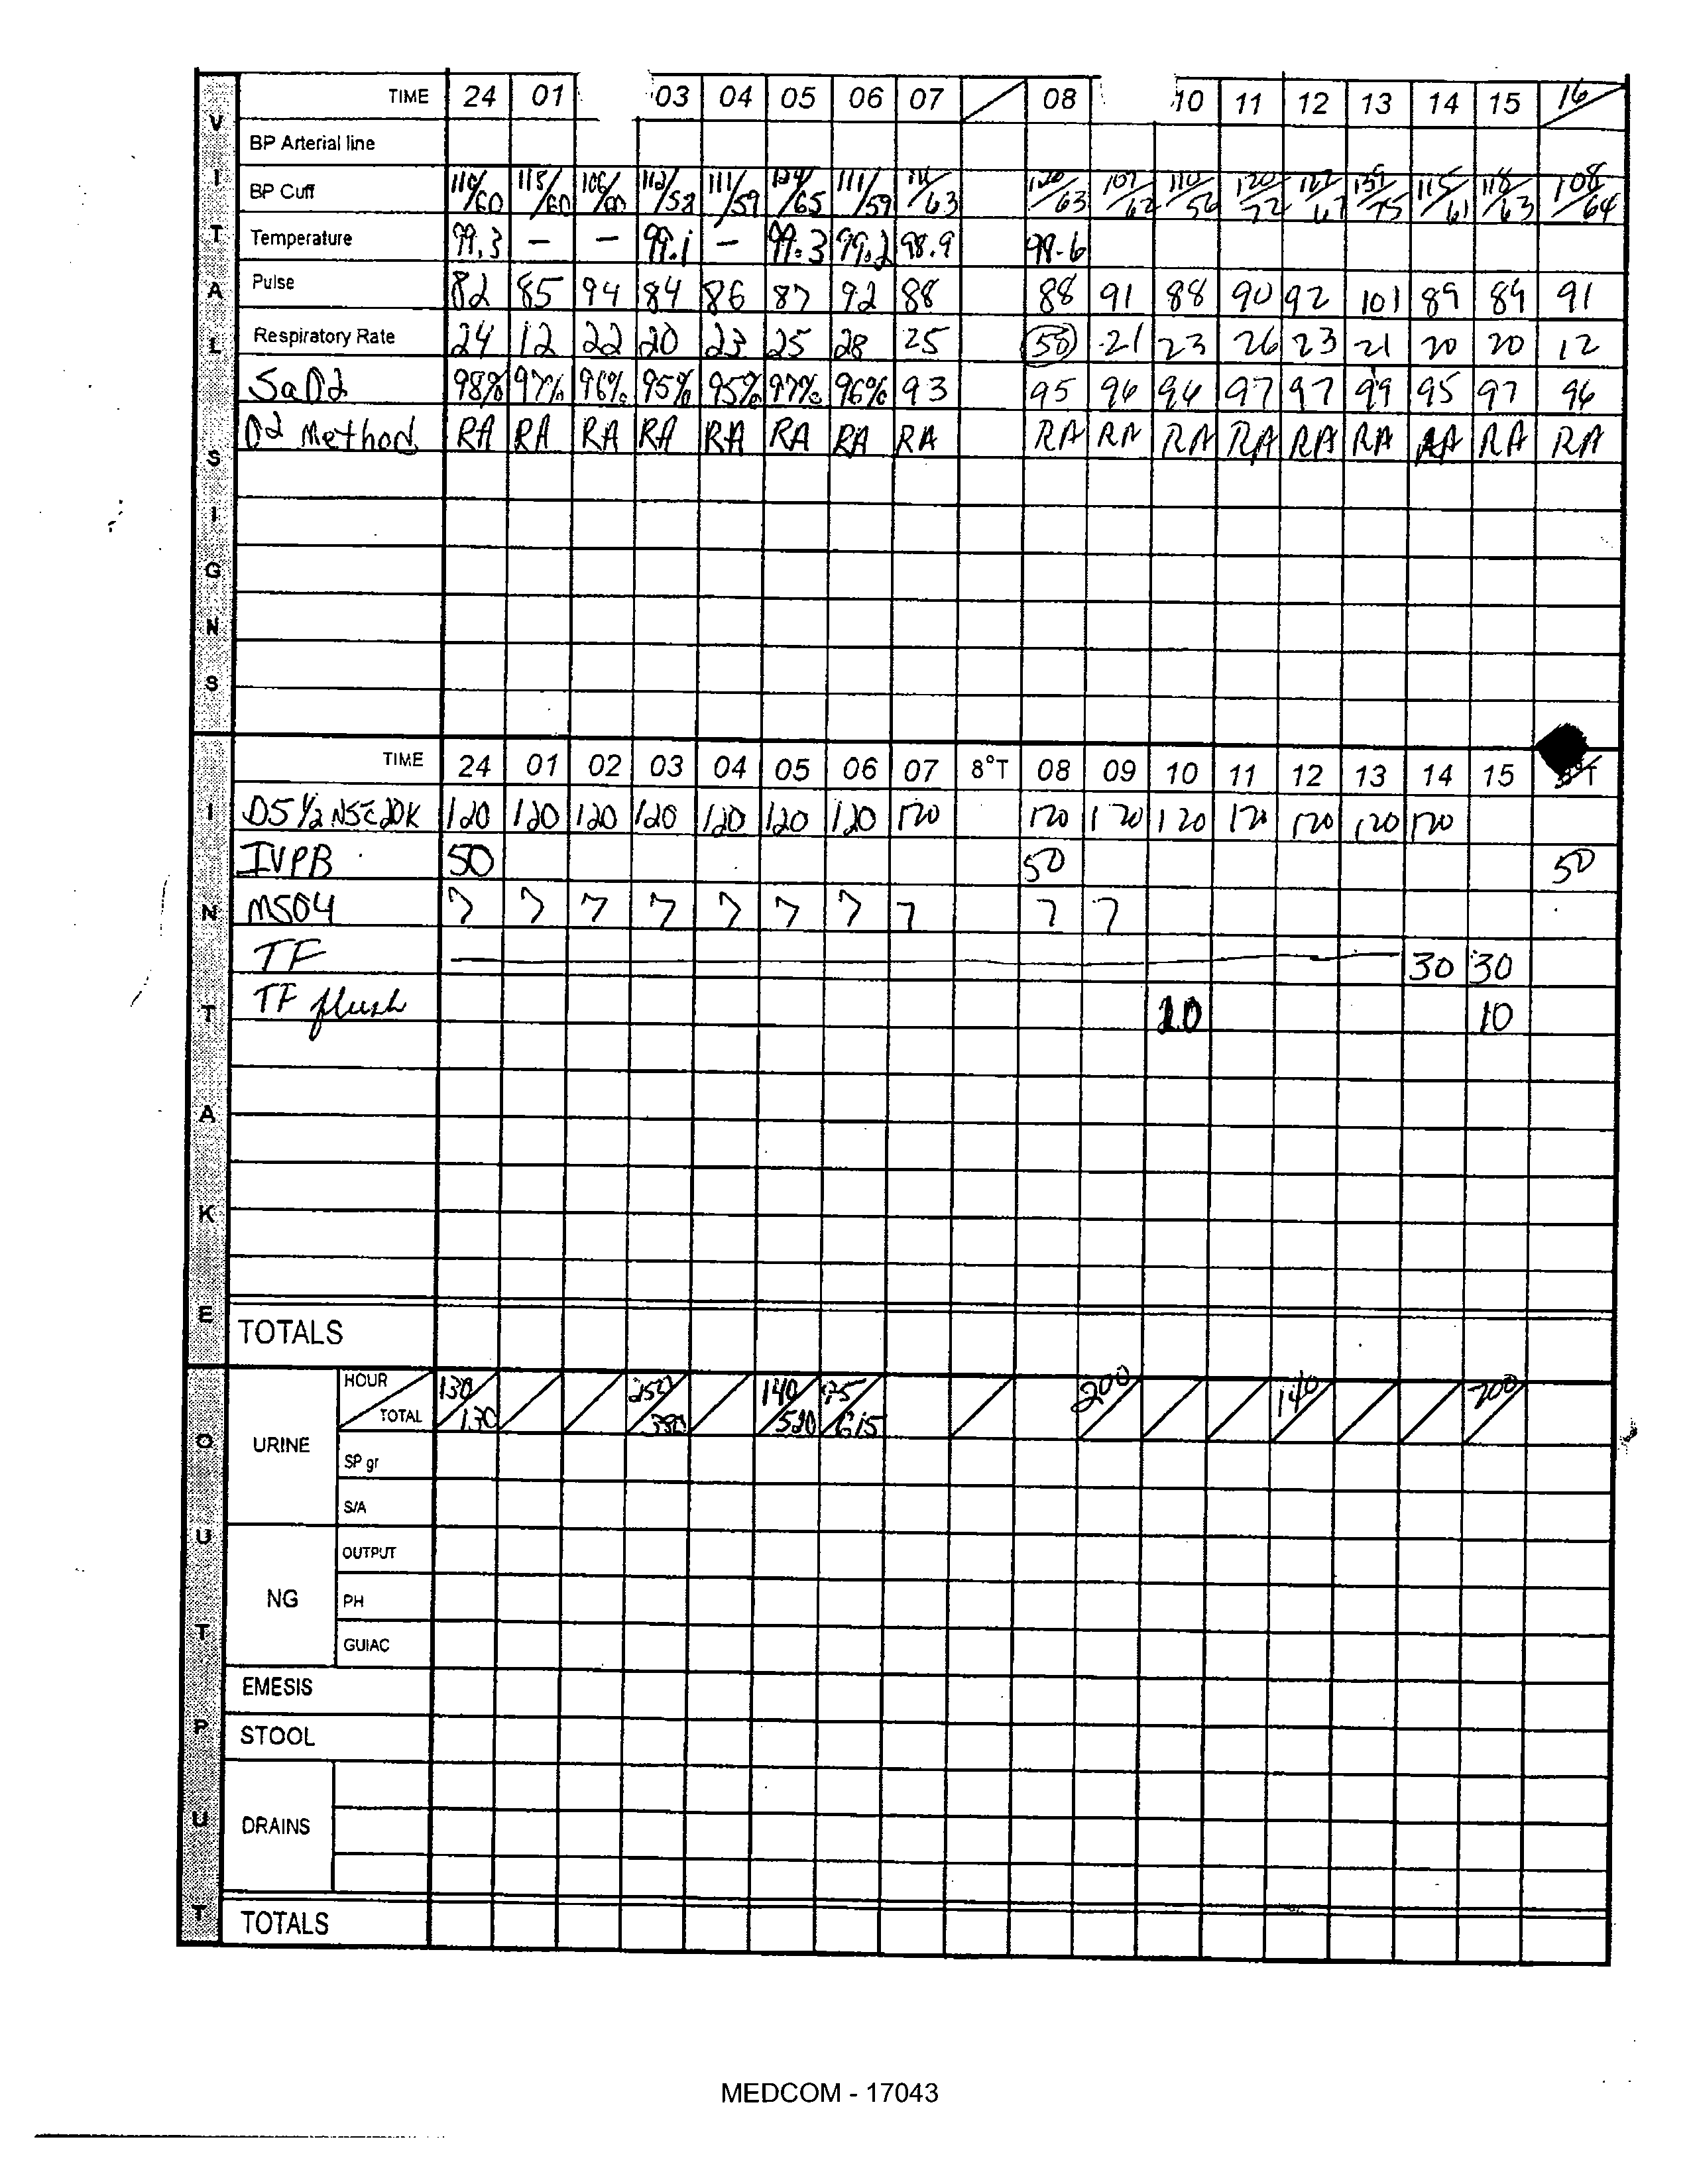 VITAL SIGNS
TIME 24 01 03 04 05 06 07 08 10 11 12 13 14 15 16
BP Arterial line
BP Cuff 110/60 115/60 106/60 112/58 111/59 124/65 111/59 /63 120/63 107/62 110/56 120/72 127/67 139/75 115/61 118/63 108/64
Temperature 99.3 - - 99.1 - 99.3 99.2 98.9 99.6
Pulse 82 85 94 84 86 87 92 88 88 91 88 90 92 101 89 89 91
Respiratory Rate 24 12 22 20 23 25 28 25 21 23 26 23 21 20 20 12
SaO2 98% 97% 96% 95% 95% 97% 96% 93 95 96 96 97 97 99 95 97 96
O2 Method RA RA RA RA RA RA RA RA RA RA RA RA RA RA RA RA RA
INTAKE
TIME 24 01 02 03 04 05 06 07 8°T 08 09 10 11 12 13 14 15 8°T
D5 1/2 NS c̄ 20K 120 120 120 120 120 120 120 120 120 120 120 120 120 120 120
IVPB 50 50 50
MSO4 7 7 7 7 7 7 7 7 7 7
TF 30 30
TF flush 20 10
TOTALS
OUTPUT
URINE
HOUR 130 250 140 95 200 140 200
TOTAL 130 380 520 615
SP gr
S/A
NG
OUTPUT
PH
GUIAC
EMESIS
STOOL
DRAINS
TOTALS
MEDCOM - 17043